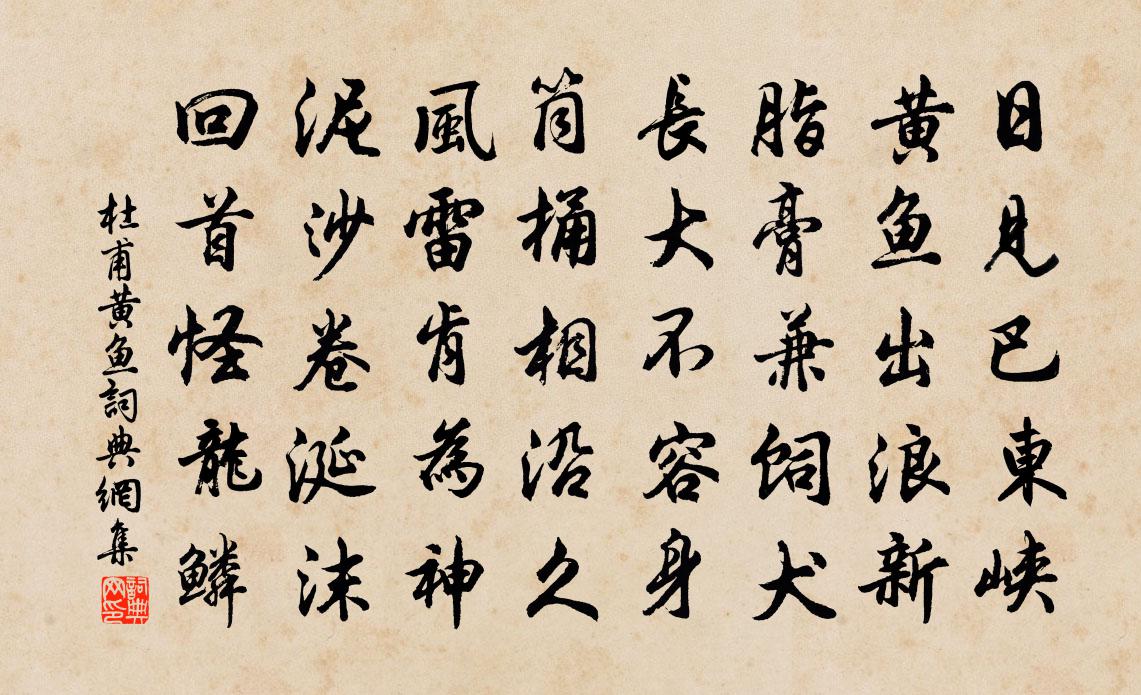 日見巴東峽
黄魚出浪新
脂膏兼飼犬
長大不容身
筒桶相沿久
風雷肯為神
泥沙卷涎沫
回首怪龍鱗
杜甫黄魚詞典網集
詞典
网印